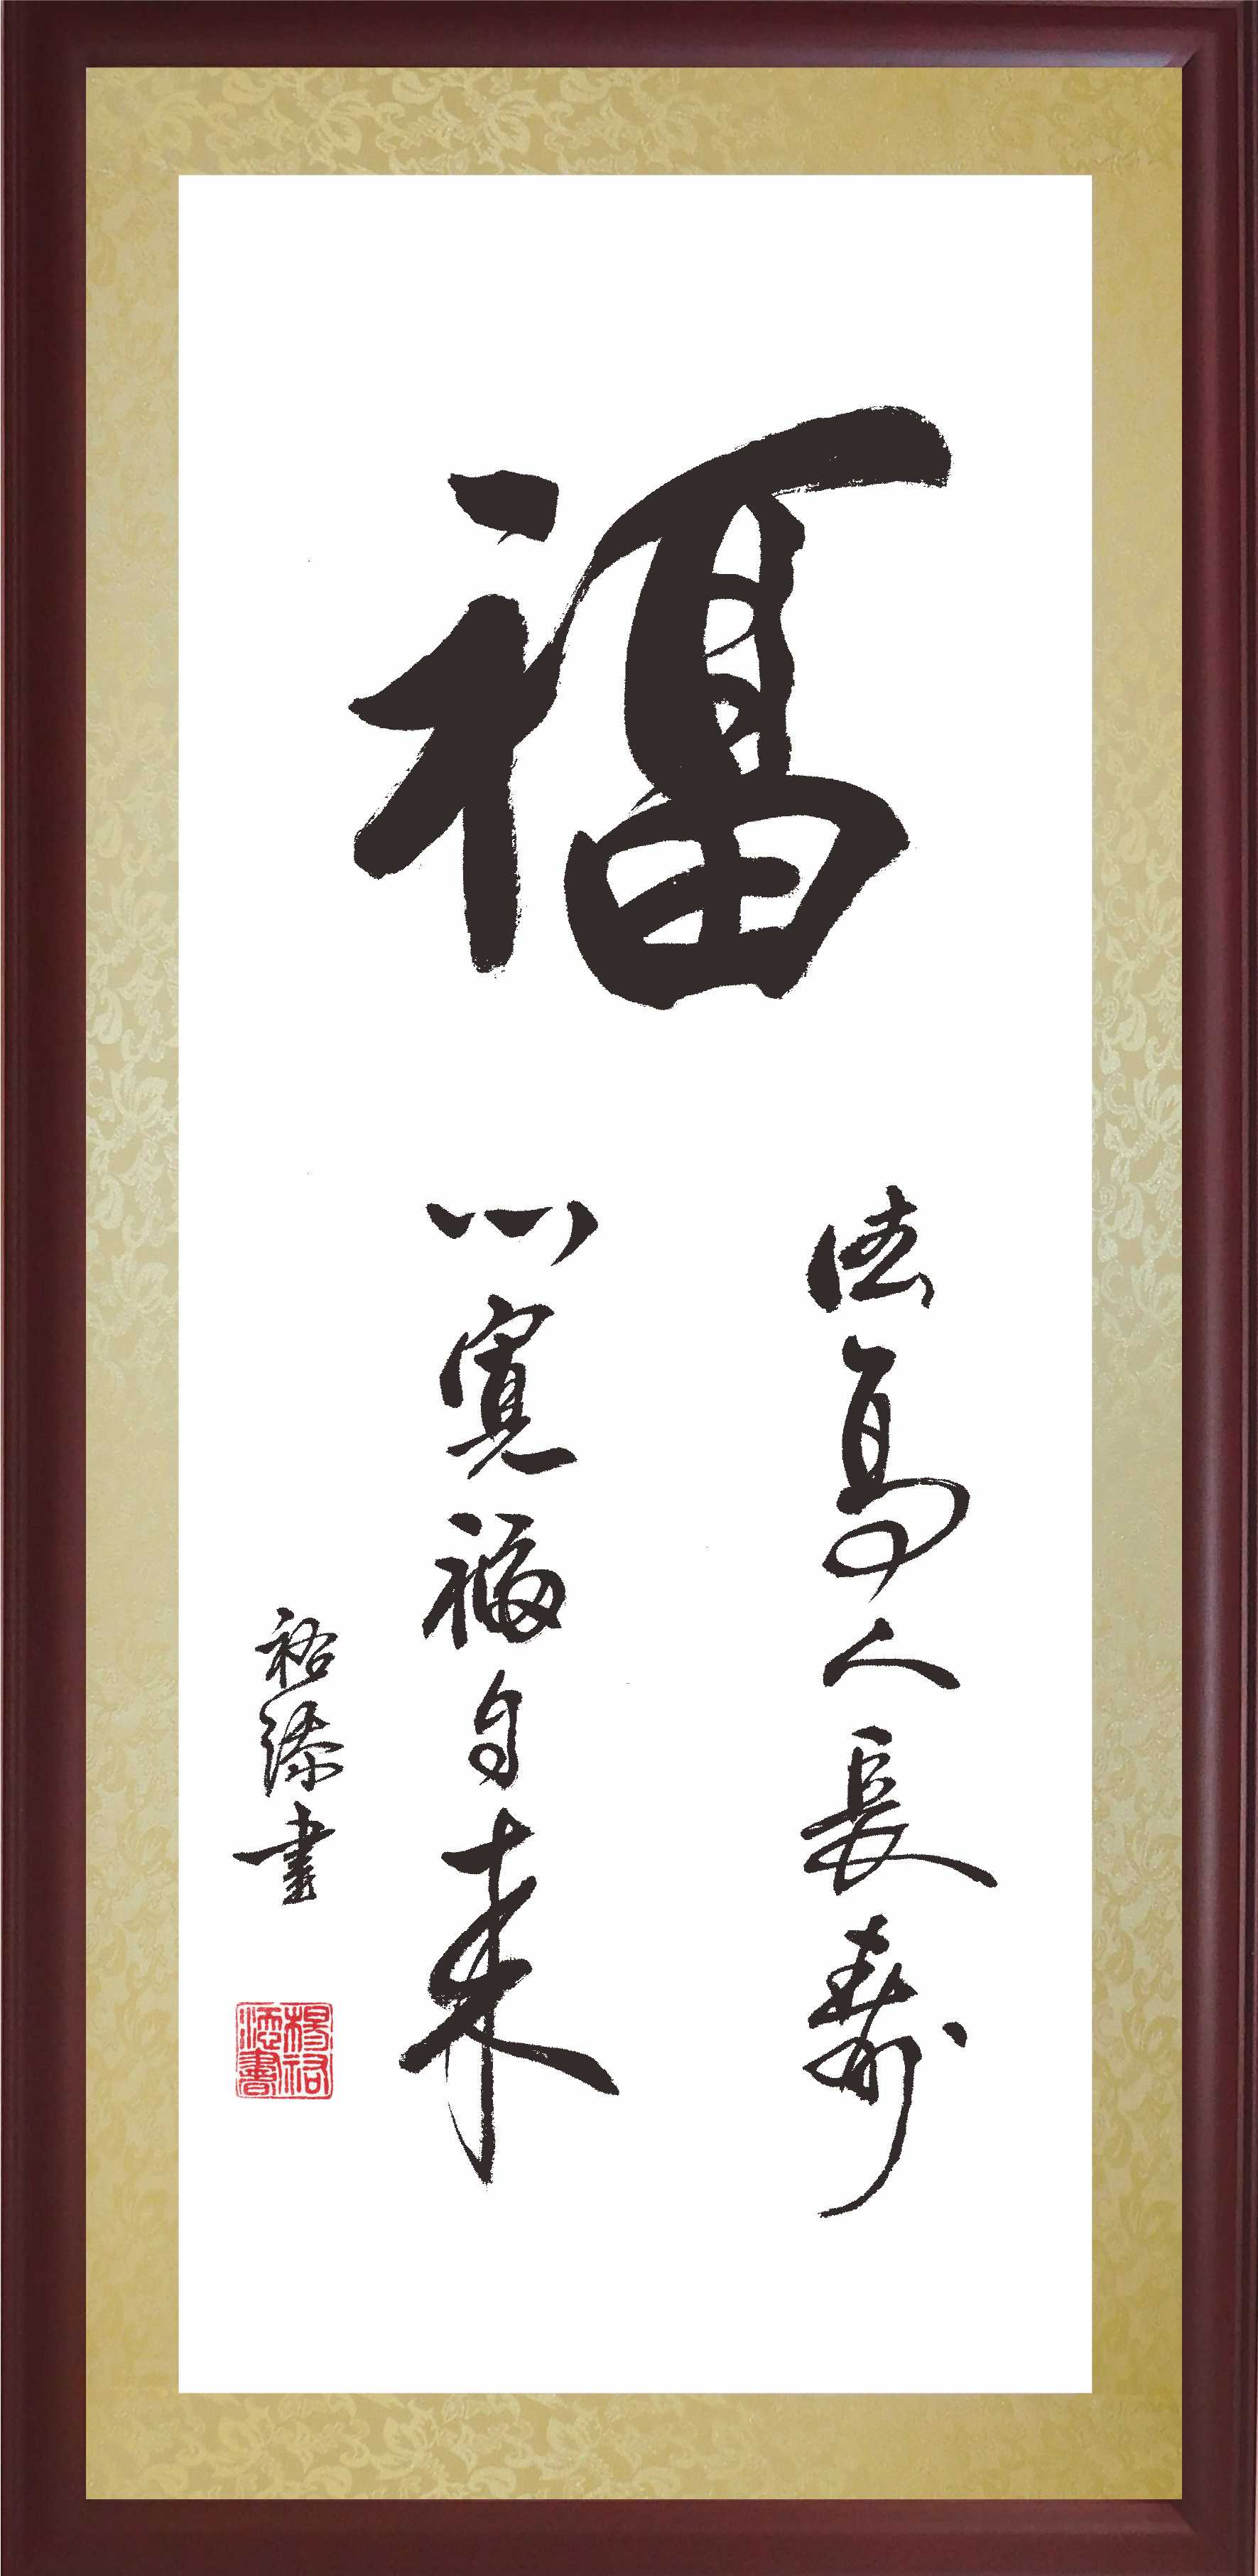 福
德高人長壽
心寬福自来
裕添書
楊裕添書